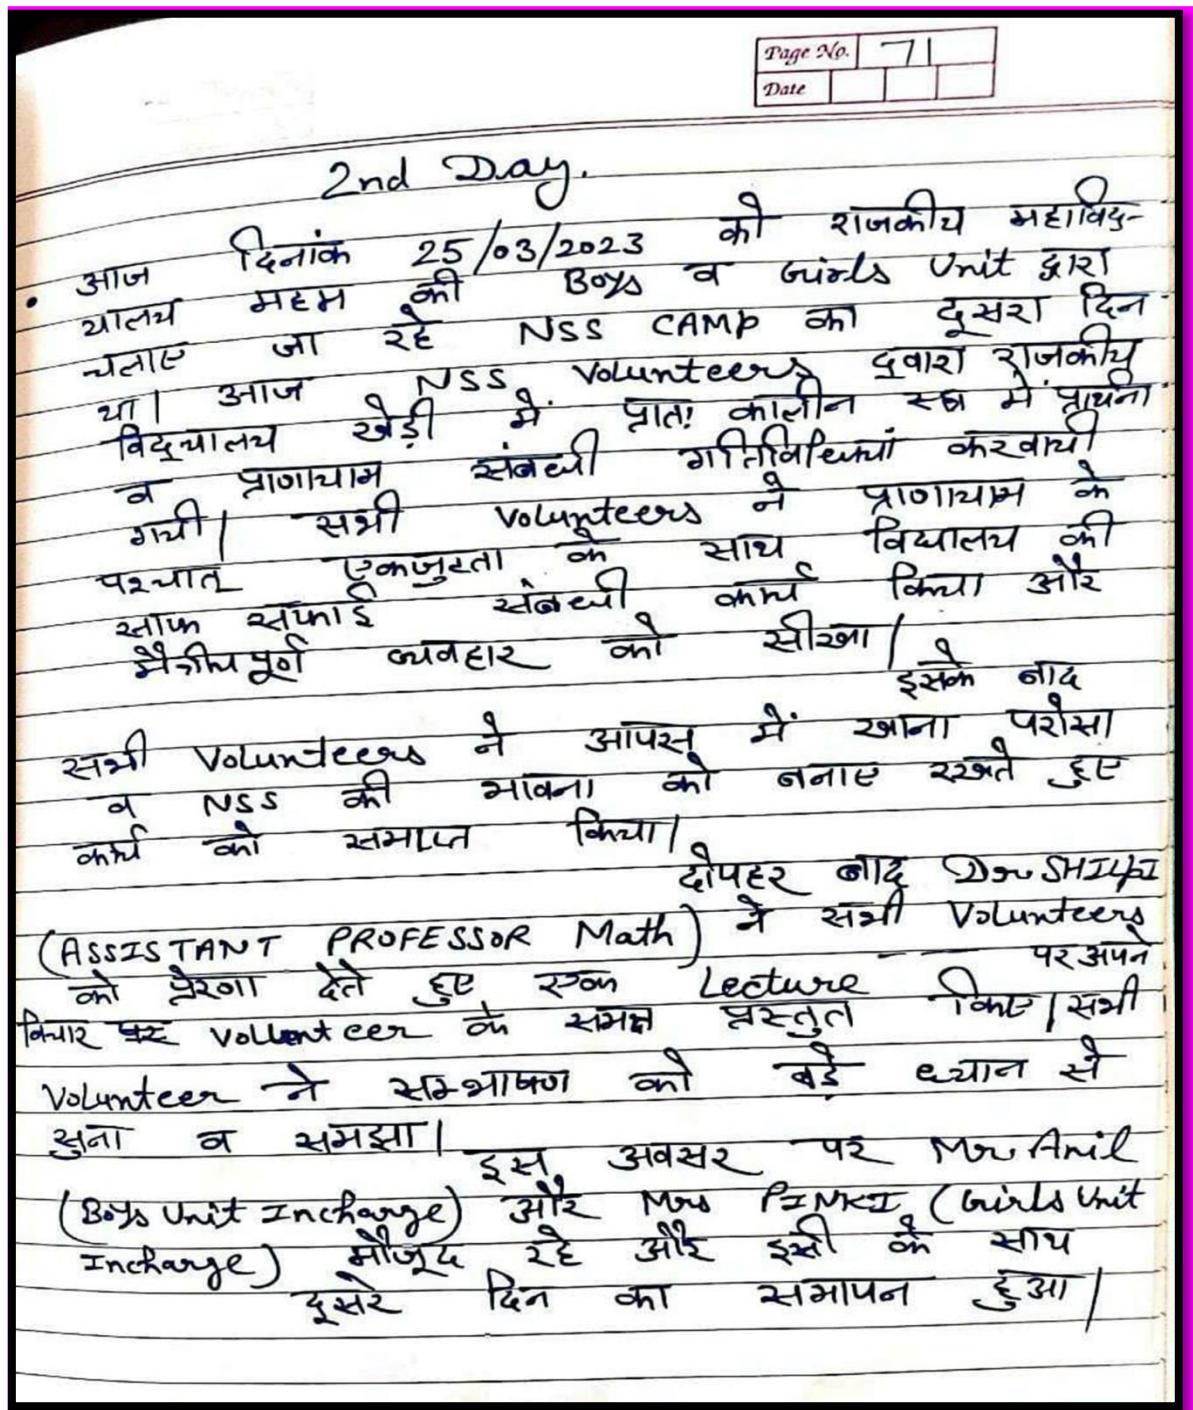 Page No. 71
Date
2nd Day.
• आज दिनांक 25/03/2023 को राजकीय महाविद्-
यालय महम की Boys व Girls Unit द्वारा
चलाए जा रहे NSS CAMP का दूसरा दिन
था। आज NSS Volunteers द्वारा राजकीय
विद्यालय खेड़ी में प्रातः कालीन सत्र में प्रार्थना
व प्राणायाम संबंधी गतिविधियां करवायी
गयी। सभी Volunteers ने प्राणायाम के
पश्चात् एकजुटता के साथ विद्यालय की
साफ सफाई संबंधी कार्य किया और
मैत्रीयपूर्ण व्यवहार को सीखा।
इसके बाद
सभी Volunteers ने आपस में खाना परोसा
व NSS की भावना को बनाए रखते हुए
कार्य को समाप्त किया।
दोपहर बाद Dr. SHILPI
(ASSISTANT PROFESSOR Math) ने सभी Volunteers
को प्रेरणा देते हुए एक Lecture पर अपने
विचार Vollenteer के समक्ष प्रस्तुत किए। सभी
Volunteer ने सम्भाषण को बड़े ध्यान से
सुना व समझा।
इस अवसर पर Mr. Anil
(Boys Unit Incharge) और Mrs PINKI (Girls Unit
Incharge) मौजूद रहे और इसी के साथ
दूसरे दिन का समापन हुआ।